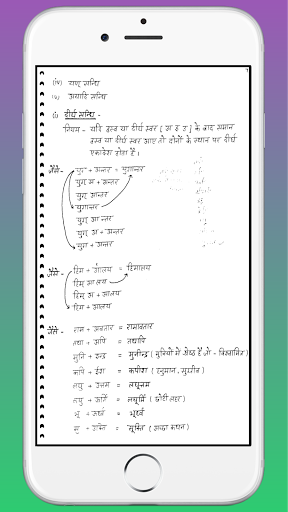 (iv) यण् सन्धि
(v) अयादि सन्धि
(i) दीर्घ सन्धि -
नियम - यदि ह्रस्व या दीर्घ स्वर [ अ इ उ ] के बाद समान
ह्रस्व या दीर्घ स्वर आए तो दोनों के स्थान पर दीर्घ
एकादेश होता है।
जैसे- युग + अन्तर = युगान्तर
युग् अ + अन्तर
युग् आ न्तर
युगान्तर
युग् आ न्तर
युग् अ + अन्तर
युग + अन्तर
जैसे - हिम + आलय = हिमालय
हिम् आ लय
हिम् अ + आलय
हिम + आलय
जैसे - राम + अवतार = रामावतार
तथा + अपि = तथापि
मुनि + इन्द्र = मुनीन्द्र ( मुनियों में श्रेष्ठ है जो - विश्वामित्र)
कपि + ईश = कपीश ( हनुमान, सुग्रीव)
लघु + उत्तम = लघूत्तम
लघु + ऊर्मि = लघूर्मि ( छोटी लहर )
भू + ऊर्ध्व = भूर्ध्व
सु + उक्ति = सूक्ति ( अच्छा कथन )